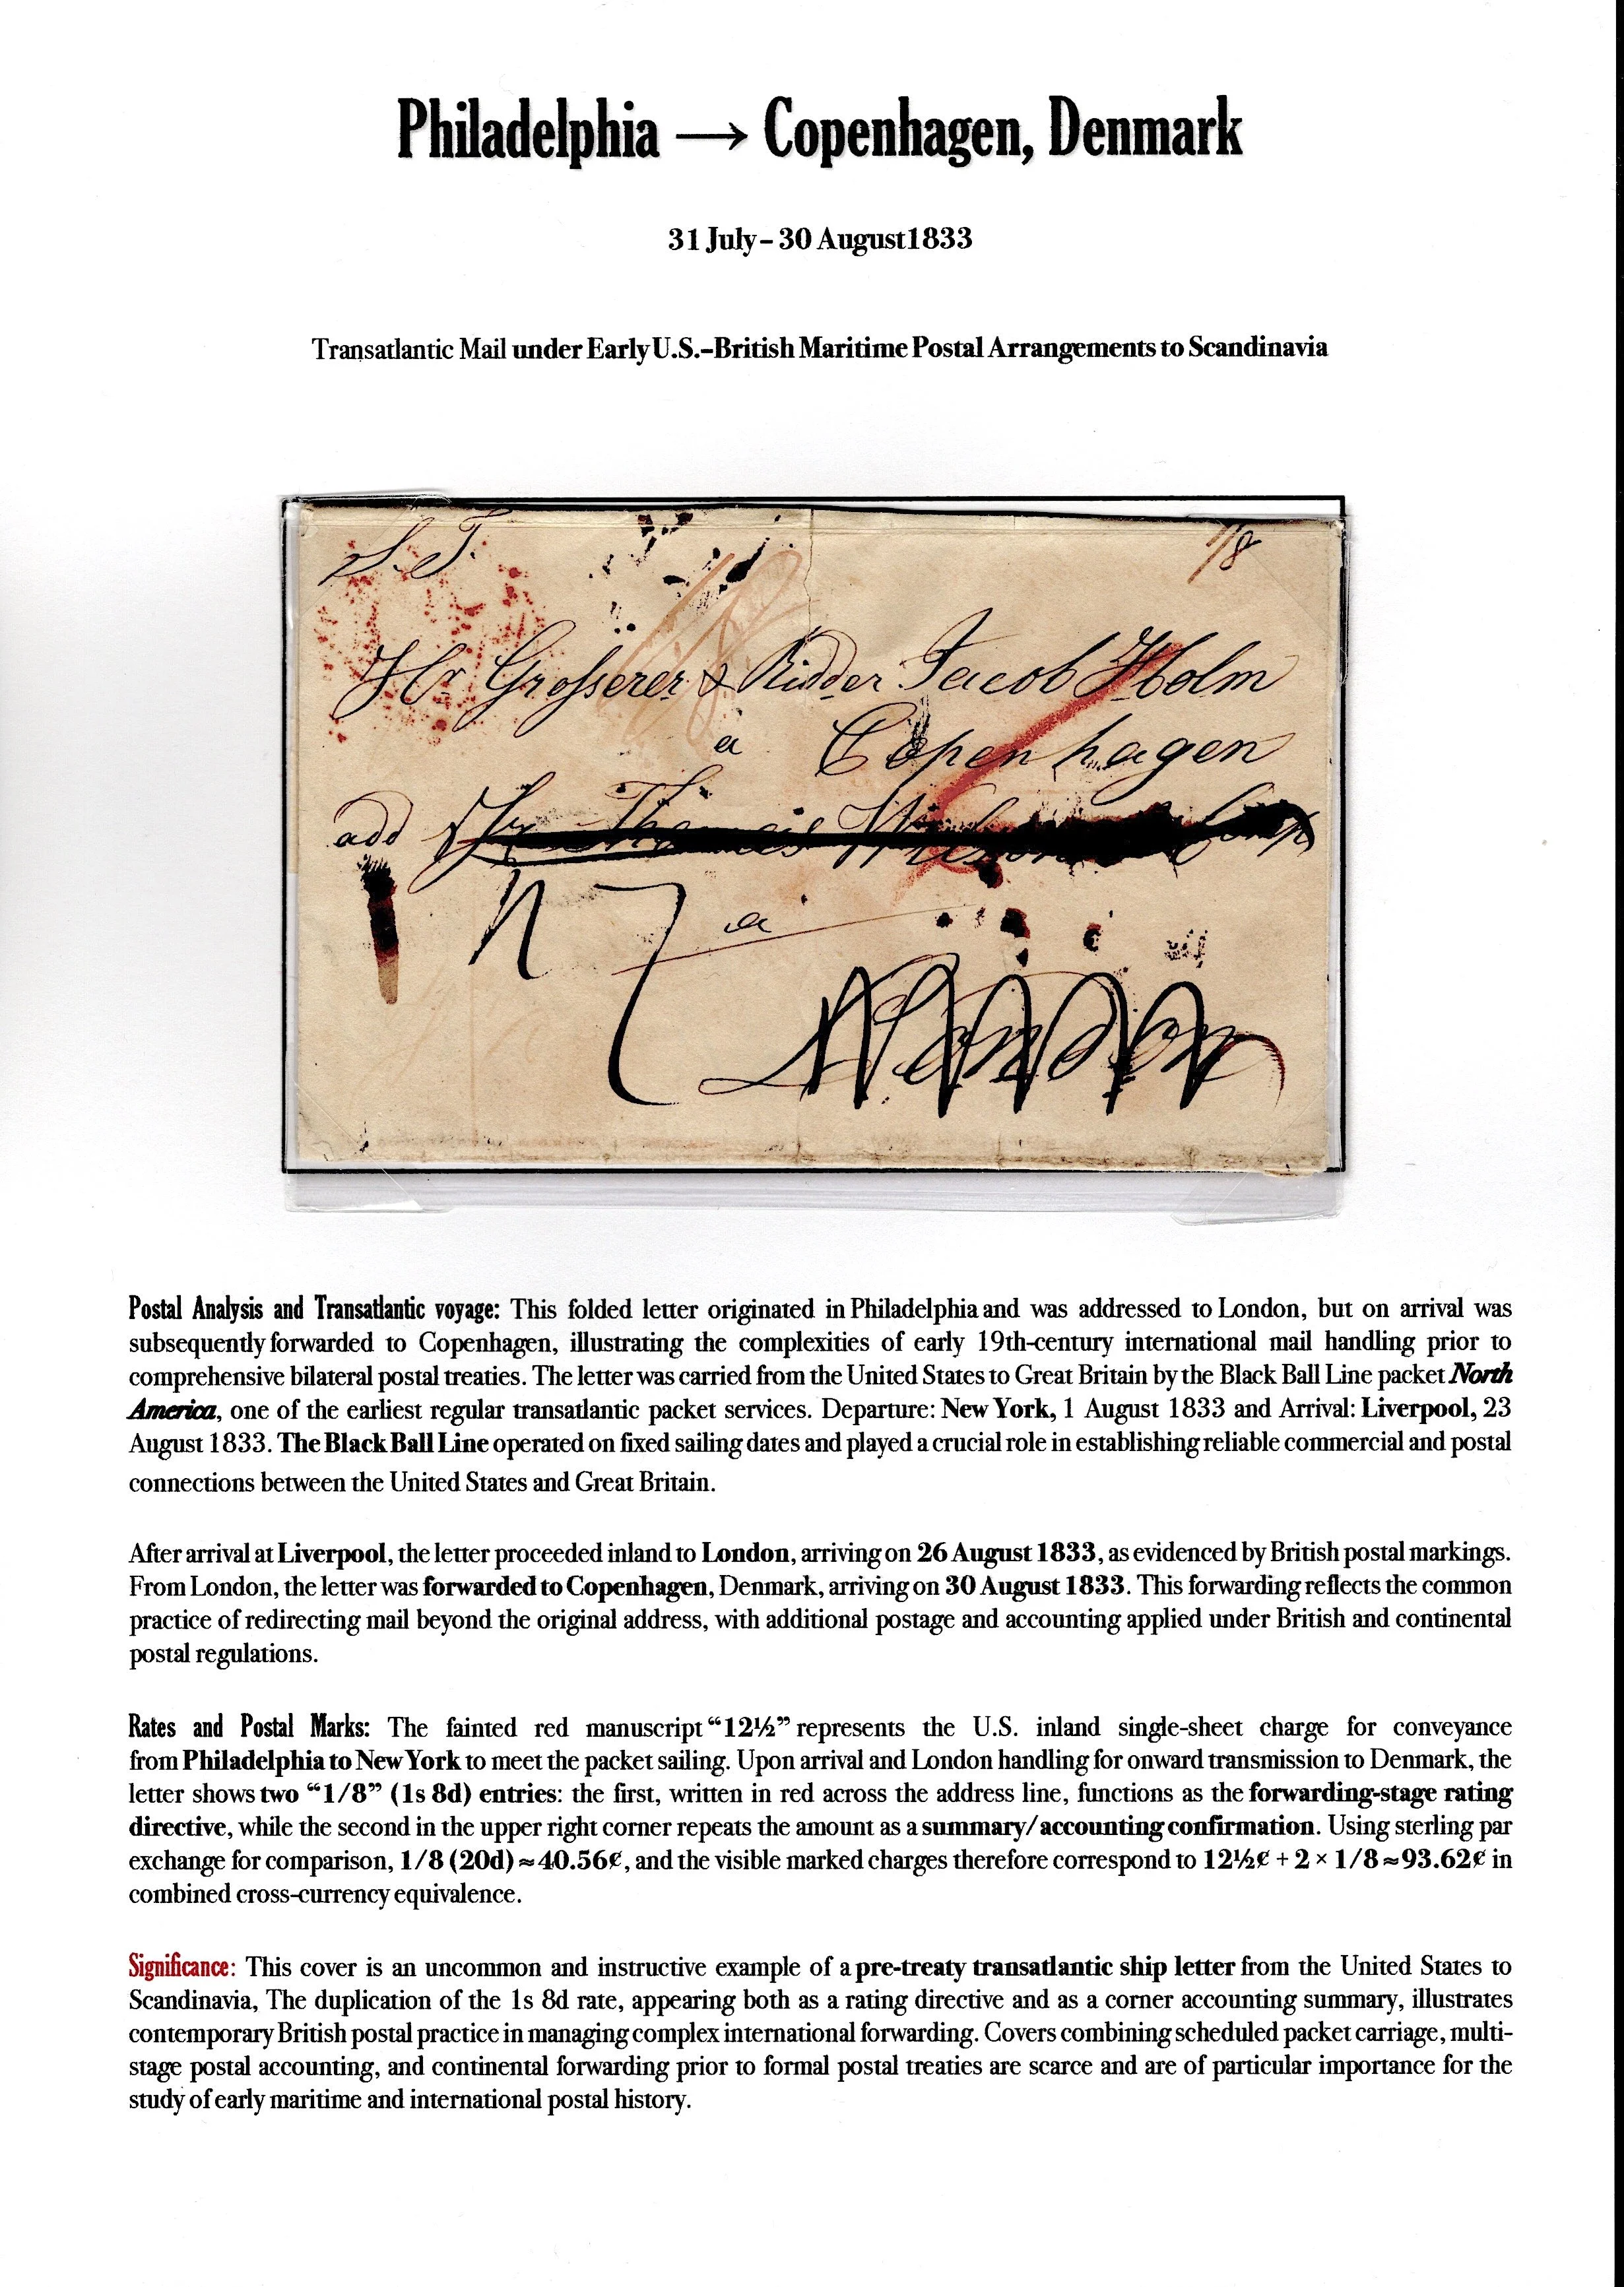 Philadelphia → Copenhagen, Denmark
31 July – 30 August1833
Transatlantic Mail under Early U.S.–British Maritime Postal Arrangements to Scandinavia
S. T.
1/8
1/8
Hr Grosserer & Ridder Jacob Holm
a Copenhagen
add Hr Thomas Comp
a
London
Postal Analysis and Transatlantic voyage: This folded letter originated in Philadelphia and was addressed to London, but on arrival was
subsequently forwarded to Copenhagen, illustrating the complexities of early 19th-century international mail handling prior to
comprehensive bilateral postal treaties. The letter was carried from the United States to Great Britain by the Black Ball Line packet North
America, one of the earliest regular transatlantic packet services. Departure: New York, 1 August 1833 and Arrival: Liverpool, 23
August 1833. The Black Ball Line operated on fixed sailing dates and played a crucial role in establishing reliable commercial and postal
connections between the United States and Great Britain.
After arrival at Liverpool, the letter proceeded inland to London, arriving on 26 August 1833, as evidenced by British postal markings.
From London, the letter was forwarded to Copenhagen, Denmark, arriving on 30 August 1833. This forwarding reflects the common
practice of redirecting mail beyond the original address, with additional postage and accounting applied under British and continental
postal regulations.
Rates and Postal Marks: The fainted red manuscript “12½” represents the U.S. inland single-sheet charge for conveyance
from Philadelphia to New York to meet the packet sailing. Upon arrival and London handling for onward transmission to Denmark, the
letter shows two “1/8” (1s 8d) entries: the first, written in red across the address line, functions as the forwarding-stage rating
directive, while the second in the upper right corner repeats the amount as a summary/accounting confirmation. Using sterling par
exchange for comparison, 1/8 (20d) ≈ 40.56¢, and the visible marked charges therefore correspond to 12½¢ + 2 × 1/8 ≈ 93.62¢ in
combined cross-currency equivalence.
Significance: This cover is an uncommon and instructive example of a pre-treaty transatlantic ship letter from the United States to
Scandinavia, The duplication of the 1s 8d rate, appearing both as a rating directive and as a corner accounting summary, illustrates
contemporary British postal practice in managing complex international forwarding. Covers combining scheduled packet carriage, multi-
stage postal accounting, and continental forwarding prior to formal postal treaties are scarce and are of particular importance for the
study of early maritime and international postal history.